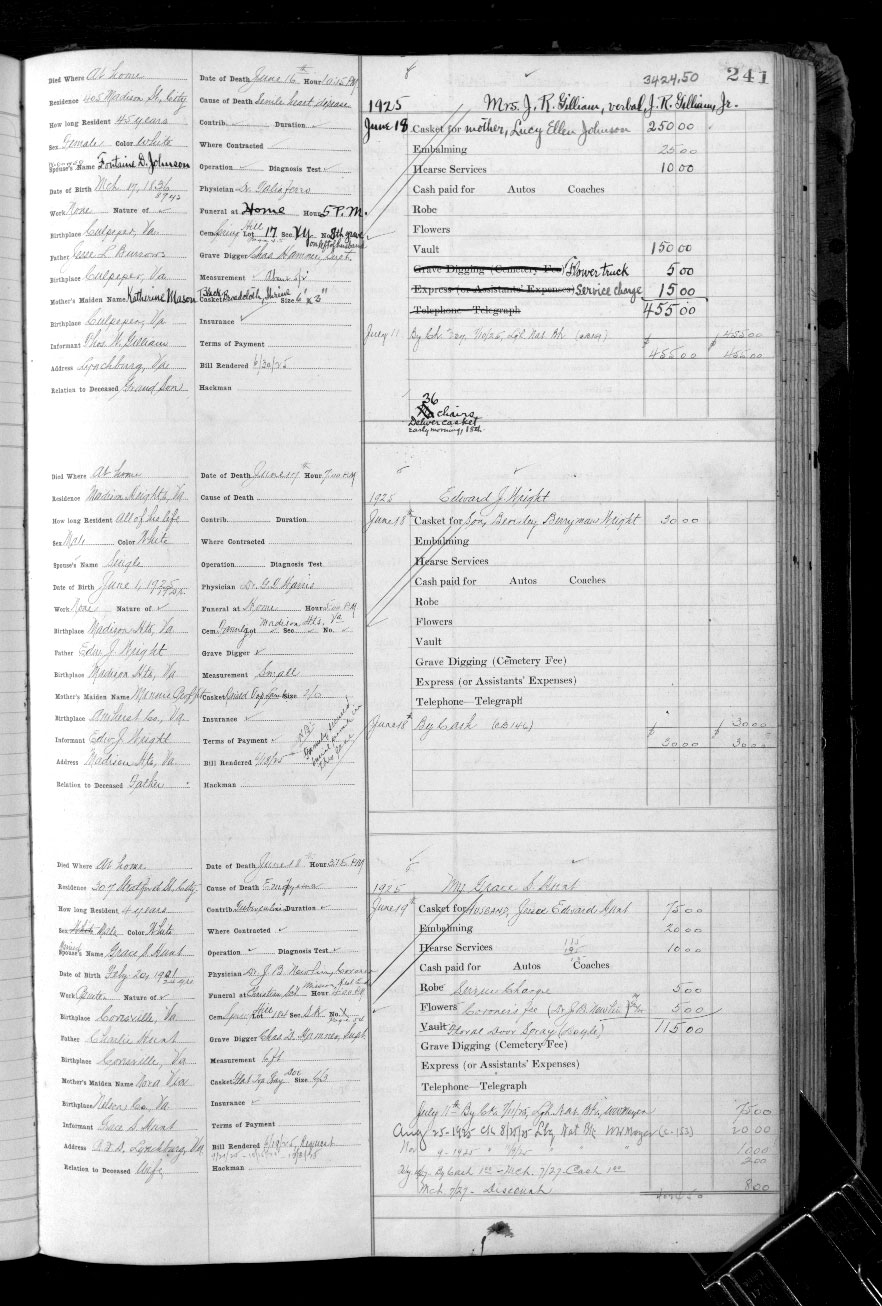 3424.50 241
Died Where At home Date of Death June 16th Hour 10:25 PM
Residence 405 Madison St, City Cause of Death Senile heart disease 1925 Mrs. J. R. Gilliam, verbal, J. R. Gilliam, Jr.
How long Resident 45 years Contrib. Duration June 18 Casket for mother, Lucy Ellen Johnson 250 00
Sex Female Color White Where Contracted Embalming 25 00
Spouse's Name Fontaine D. Johnson Operation Diagnosis Test Hearse Services 10 00
Date of Birth Mch 17, 1836 Physician Dr. Taliaferro Cash paid for Autos Coaches
Work None Nature of Funeral at Home Hour 5 P.M. Robe
Birthplace Culpeper, Va Cem. Spring Hill Lot 17 Sec. No. 8th grave Flowers
on left of husband
Father Jesse L Burrows Grave Digger Chas Hamner, Supt. Vault 150 00
Birthplace Culpeper, Va Measurement Grave Digging (Cemetery Fee) Flower truck 5 00
Mother's Maiden Name Katherine Mason Casket Black Broadcloth, Size 6" x 3" Express (or Assistants' Expenses) Service charge 15 00
Birthplace Culpeper, Va Insurance Telephone Telegraph 455 00
Informant Thos. N. Gilliam Terms of Payment July 11 By Ck 7/10/25, Lbg Nat Bk $ $ 455 00
Address Lynchburg, Va Bill Rendered 6/30/25 455 00 455 00
Relation to Deceased Grand Son Hackman
36
chairs
Deliver casket
early morning, 18th
Died Where At home Date of Death June 17th Hour 7:00 P.M
Residence Madison Heights, Va Cause of Death 1925 Edward J. Wright
How long Resident all of his life Contrib. Duration June 18th Casket for Son, Beasley Berryman Wright 30 00
Sex Male Color White Where Contracted Embalming
Spouse's Name Single Operation Diagnosis Test Hearse Services
Date of Birth June 1, 1925 Physician Dr. Harris Cash paid for Autos Coaches
Work None Nature of Funeral at Home Hour 5:00 P.M Robe
Birthplace Madison Hts, Va Cem. Family Lot Madison Hts, Va Sec No. Flowers
Father Edw. J. Wright Grave Digger Vault
Birthplace Madison Hts, Va Measurement Small Grave Digging (Cemetery Fee)
Mother's Maiden Name Minnie Casket Size Express (or Assistants' Expenses)
Birthplace Amherst Co, Va Insurance Telephone—Telegraph
Informant Edw. J. Wright Terms of Payment June 18th By Cash (CB 146) $ $ 30 00
Address Madison Hts, Va Bill Rendered 6/18/25 30 00 30 00
Relation to Deceased Father Hackman
Died Where At home Date of Death June 18th Hour 3:15 P.M
Residence 207 Stratford St, City Cause of Death Empyema 1925 Mrs Grace S. Hunt
How long Resident 4 years Contrib. Tuberculosis Duration June 19th Casket for Husband, Jesse Edward Hunt 75 00
Sex White Male Color White Where Contracted Embalming 20 00
Married
Spouse's Name Grace S Hunt Operation Diagnosis Test Hearse Services 10 00
Date of Birth Physician Dr. J. B. Nowlin, Coroner Cash paid for Autos Coaches
Work Nature of Funeral at Christian Hour Robe Service Charge 5 00
Birthplace Covesville, Va Cem. Spring Hill Lot 104 Sec. No. Flowers Coroner's fee (Dr J. B. Nowlin) 5 00
Father Charlie Hunt Grave Digger Chas. D. Hamner, Supt. Vault Floral Door Spray (Eagle) 115 00
Grave Digging (Cemetery Fee)
Birthplace Covesville, Va Measurement 6 ft Express (or Assistants' Expenses)
Mother's Maiden Name Nora Casket Flat Top Gray Size 6/3 Telephone—Telegraph
Birthplace Nelson Co, Va Insurance July 11th By Ck 7/11/25, Lbg. Nat. Bk. 75.00
Informant Grace S. Hunt Terms of Payment Aug 25-1925 Ck 8/25/25 Lbg Nat Bk W H Moyer (C-153) 20.00
Address Lynchburg, Va Bill Rendered 6/19/25, Request Nov 9-1925 " " 10.00
Relation to Deceased Wife Hackman By Cash 1 00 - Mch. 7/27 - Cash 1 00 2 00
Mch 7/27 - Discount 8 00